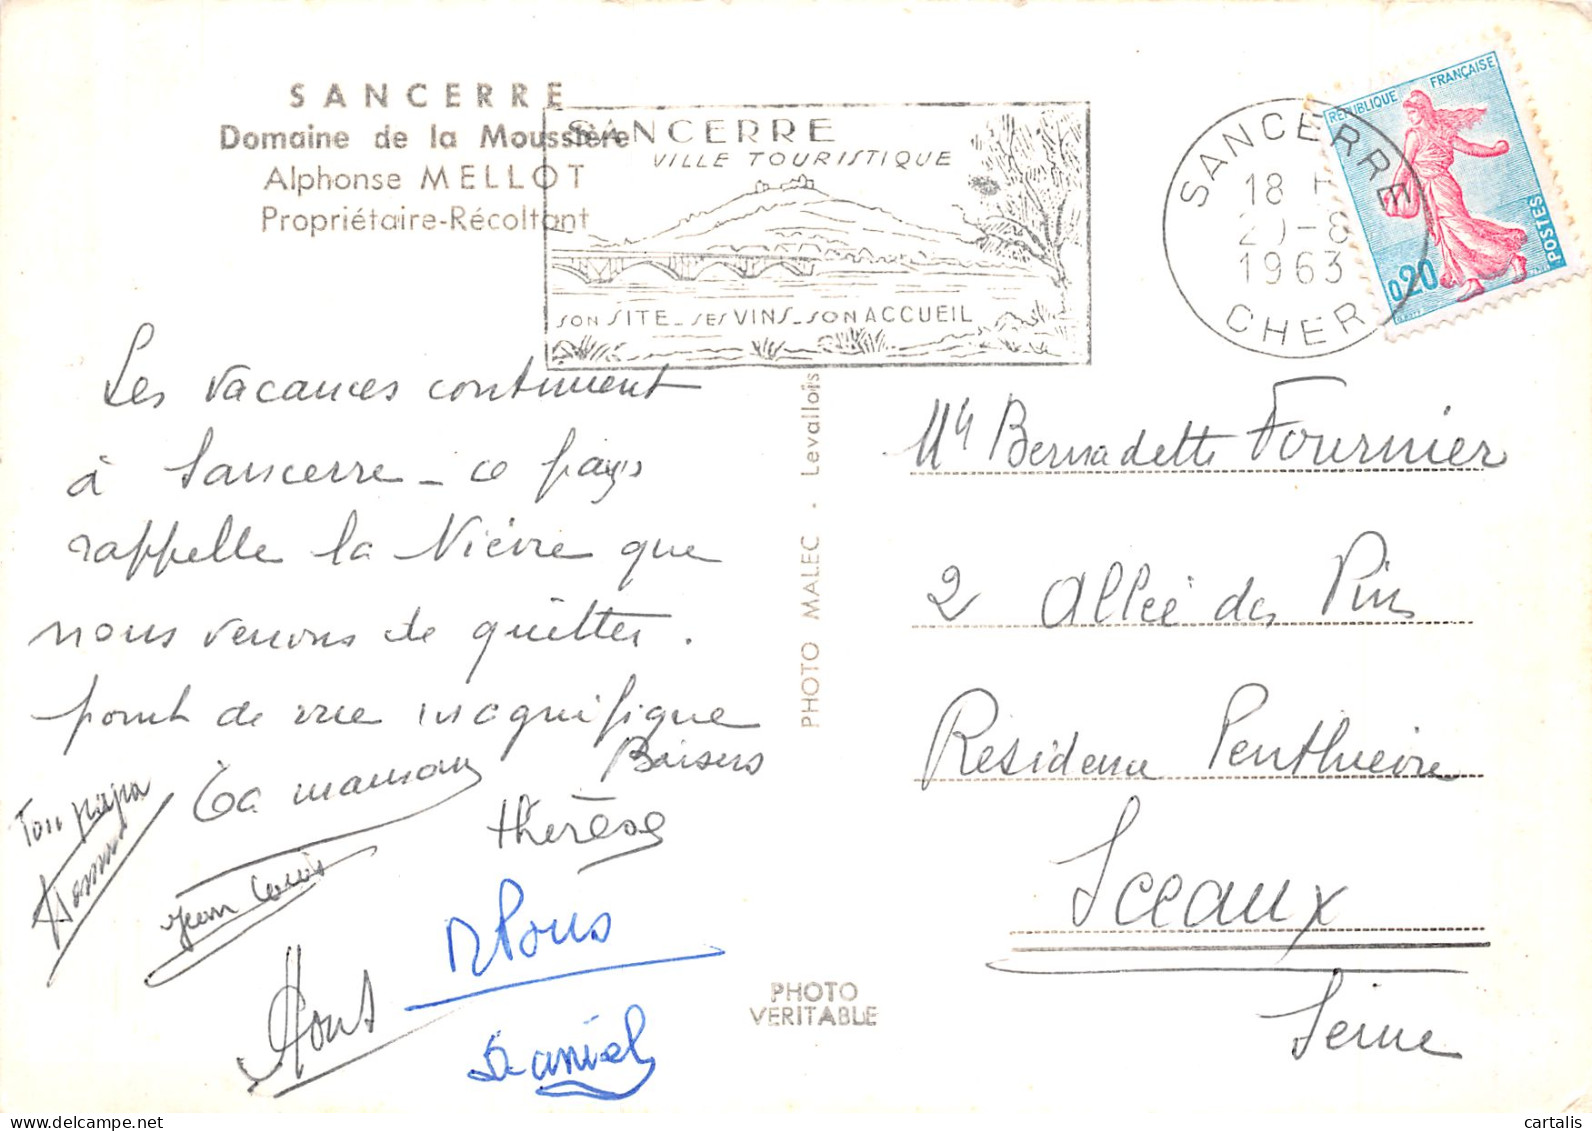 SANCERRE
Domaine de la Moussière
Alphonse MELLOT
Propriétaire-Récoltant
SANCERRE
VILLE TOURISTIQUE
SON SITE_SES VINS_SON ACCUEIL
SANCERRE
18 H
20-8
1963
CHER
RÉPUBLIQUE FRANÇAISE
POSTES
0,20
Les vacances continuent
à Sancerre - ce pays
rappelle la Nièvre que
nous venons de quitter.
point de vue magnifique
Baisers
Ta maman
Ton papa
Thérèse
Jean Louis
Daniel
PHOTO MALEC - Levallois
PHOTO
VERITABLE
Mlle Bernadette Fournier
2 Allée des Pins
Residence Penthièvre
Sceaux
Seine
cartalis
delcampe.net